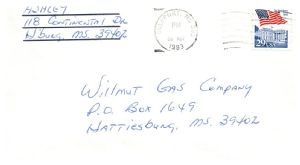 HUNLEY
118 CONTINENTAL DR
H'BURG, MS. 39402
PM
1993
29
WILLMUT GAS COMPANY
P.O. BOX 1649
HATTIESBURG, MS. 39402